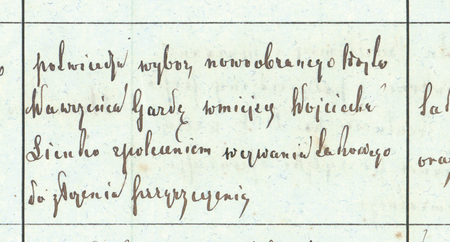 potwierdza wybor nowoobranego Wojta
Wawrzeńca Gardę w miejscu Wojciecha
Lienko z poleceniem wezwania takowego
do złożenia przysięgi